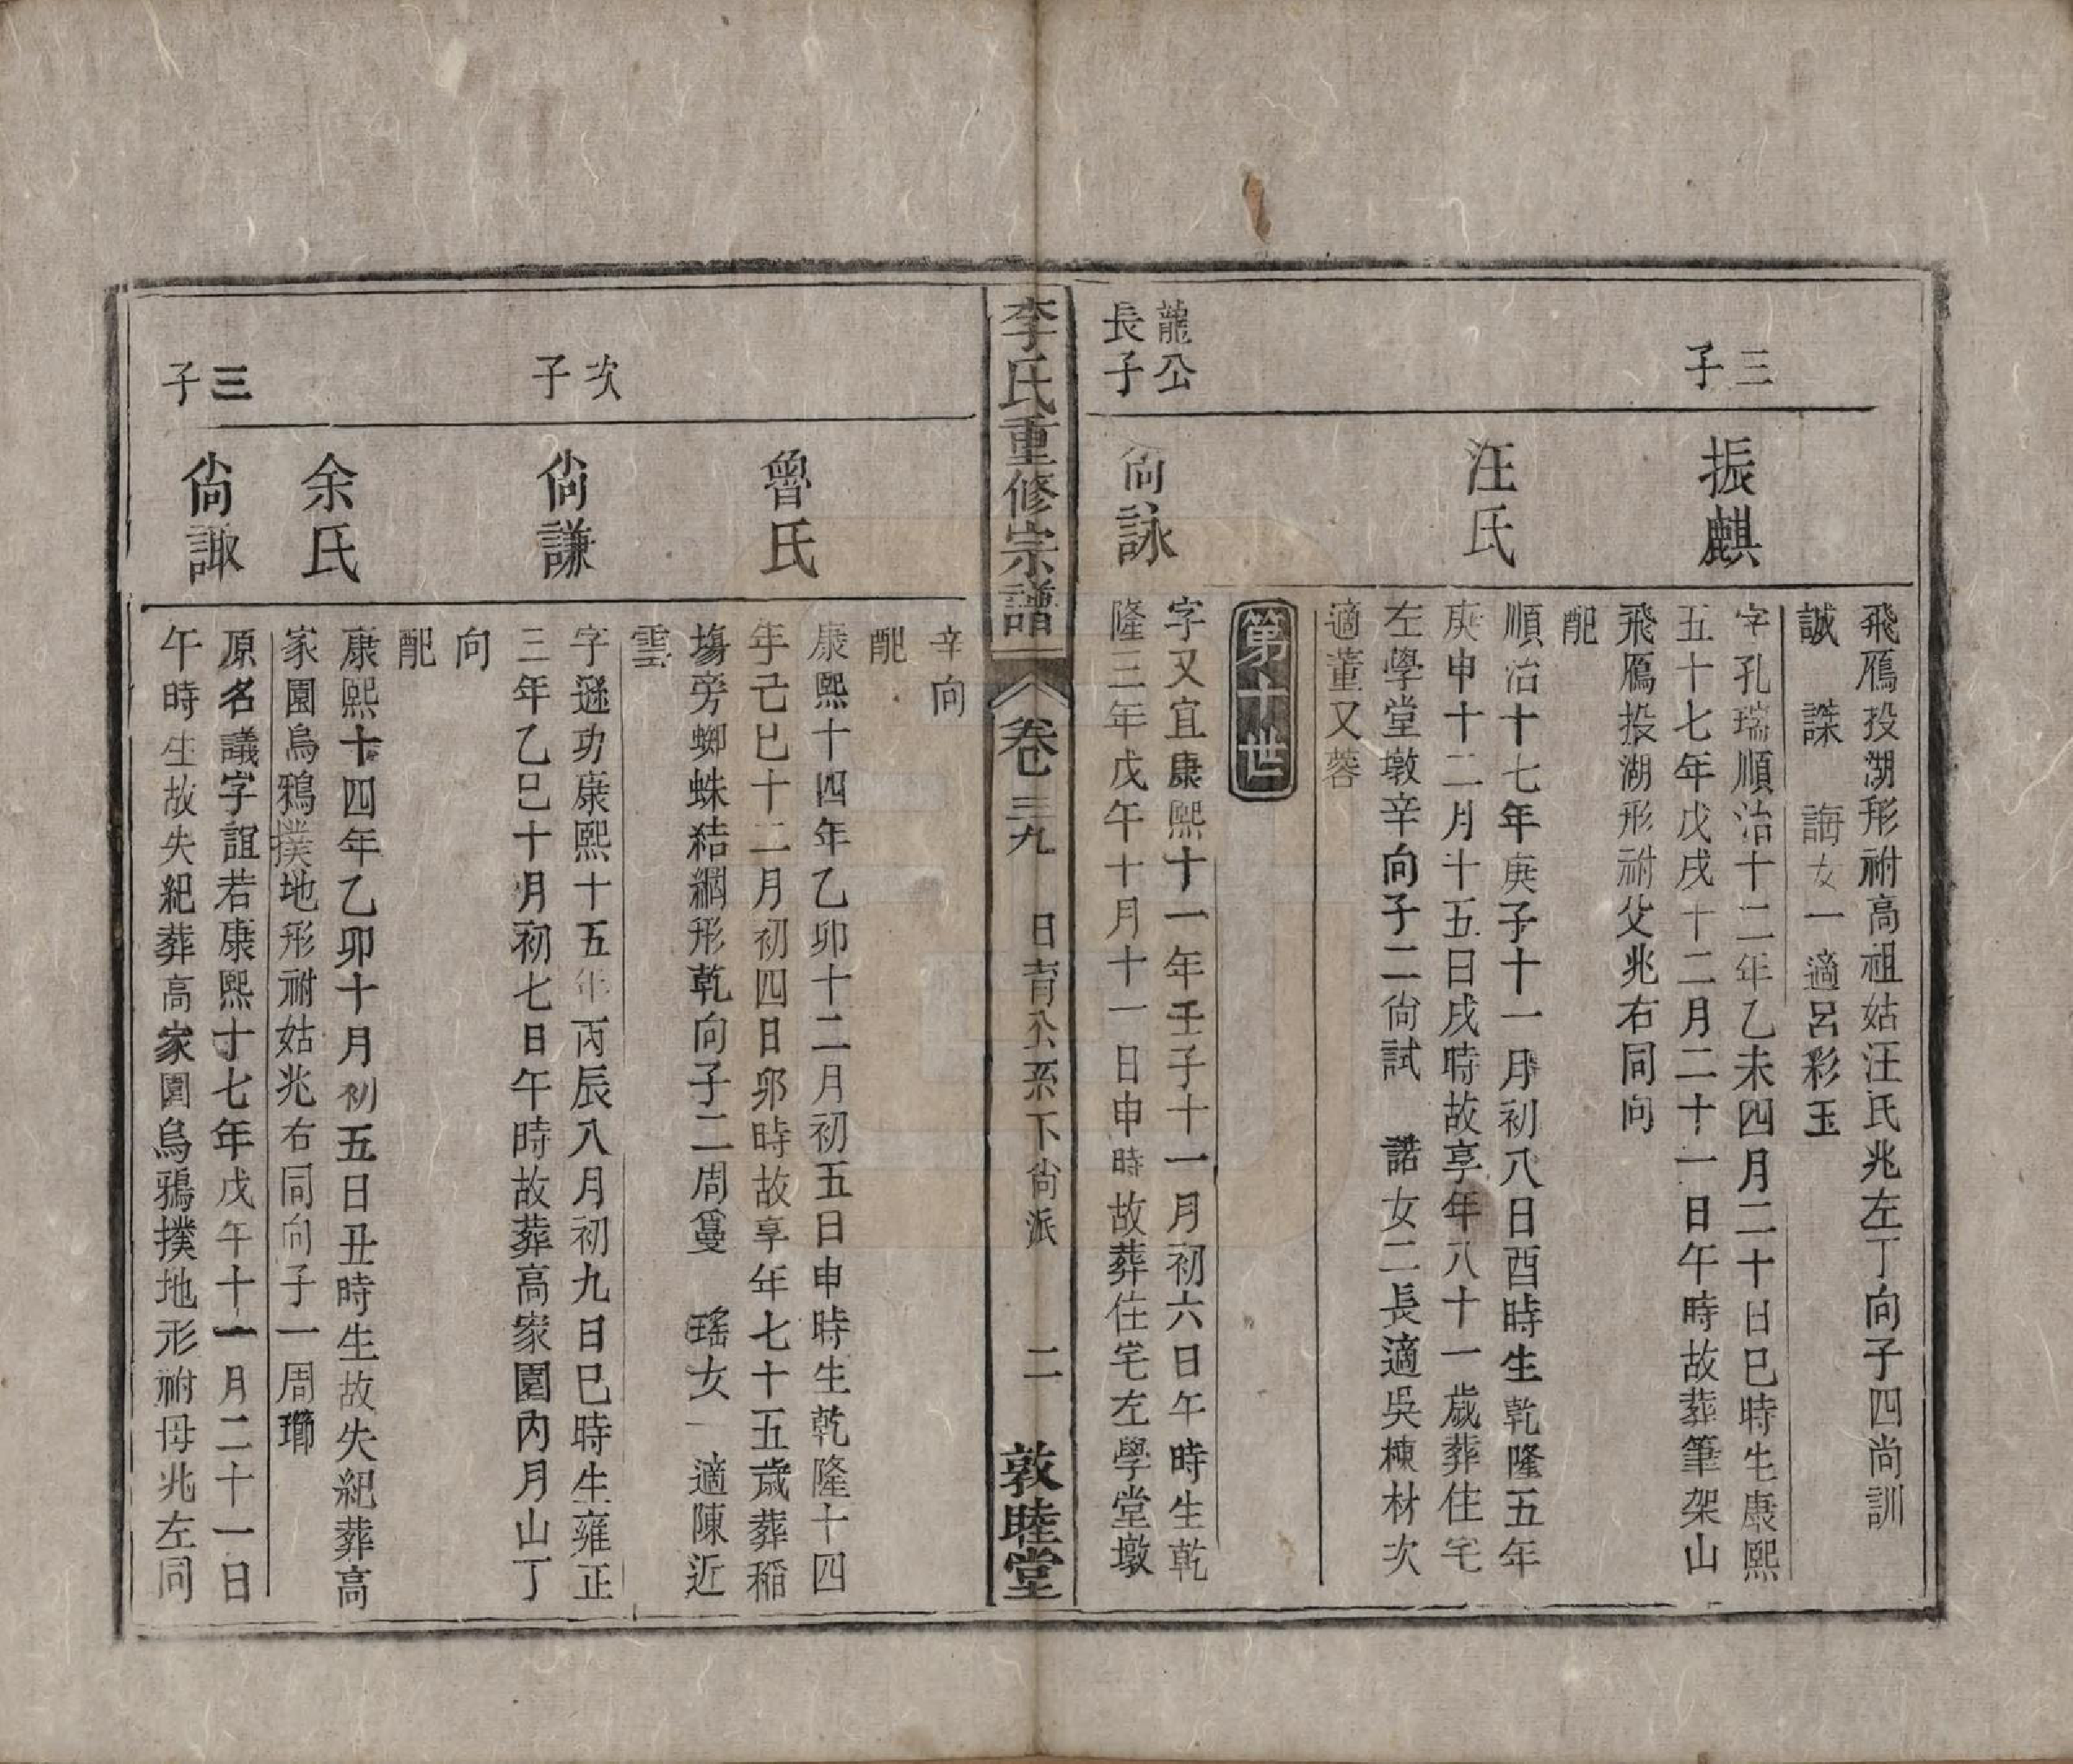 飛鴈投湖形祔高祖姑汪氏兆左丁向子四尚訓
誠　諜　誨女一適呂彩玉
三子
振麒
字孔瑞順治十二年乙未四月二十日巳時生康熙
五十七年戊戌十二月二十一日午時故葬筆架山
飛鴈投湖形祔父兆右同向
配
汪氏
順治十七年庚子十一月初八日酉時生乾隆五年
庚申十二月十五日戌時故享年八十一歲葬住宅
左學堂墩辛向子二尙試　諾女二長適吳棟材次
適董又蓉
第十世
龍公長子
尙詠
字又宜康熙十一年壬子十一月初六日午時生乾
隆三年戊午十月十一日申時故葬住宅左學堂墩
李氏重修宗譜
卷三九　日育公系下尙派　二
敦睦堂
辛向
配
魯氏
康熙十四年乙卯十二月初五日申時生乾隆十四
年己巳十二月初四日卯時故享年七十五歲葬稲
塲旁蜘蛛結網形乾向子二周夐　瑤女一適陳近
雲
次子
尙謙
字遜功康熙十五年丙辰八月初九日巳時生雍正
三年乙巳十月初七日午時故葬高家園內月山丁
向
配
余氏
康熙十四年乙卯十月初五日丑時生故失紀葬高
家園烏鴉撲地形祔姑兆右同向子一周瓓
三子
尙諏
原名議字誼若康熙十七年戊午十一月二十一日
午時生故失紀葬高家園烏鴉撲地形祔母兆左同